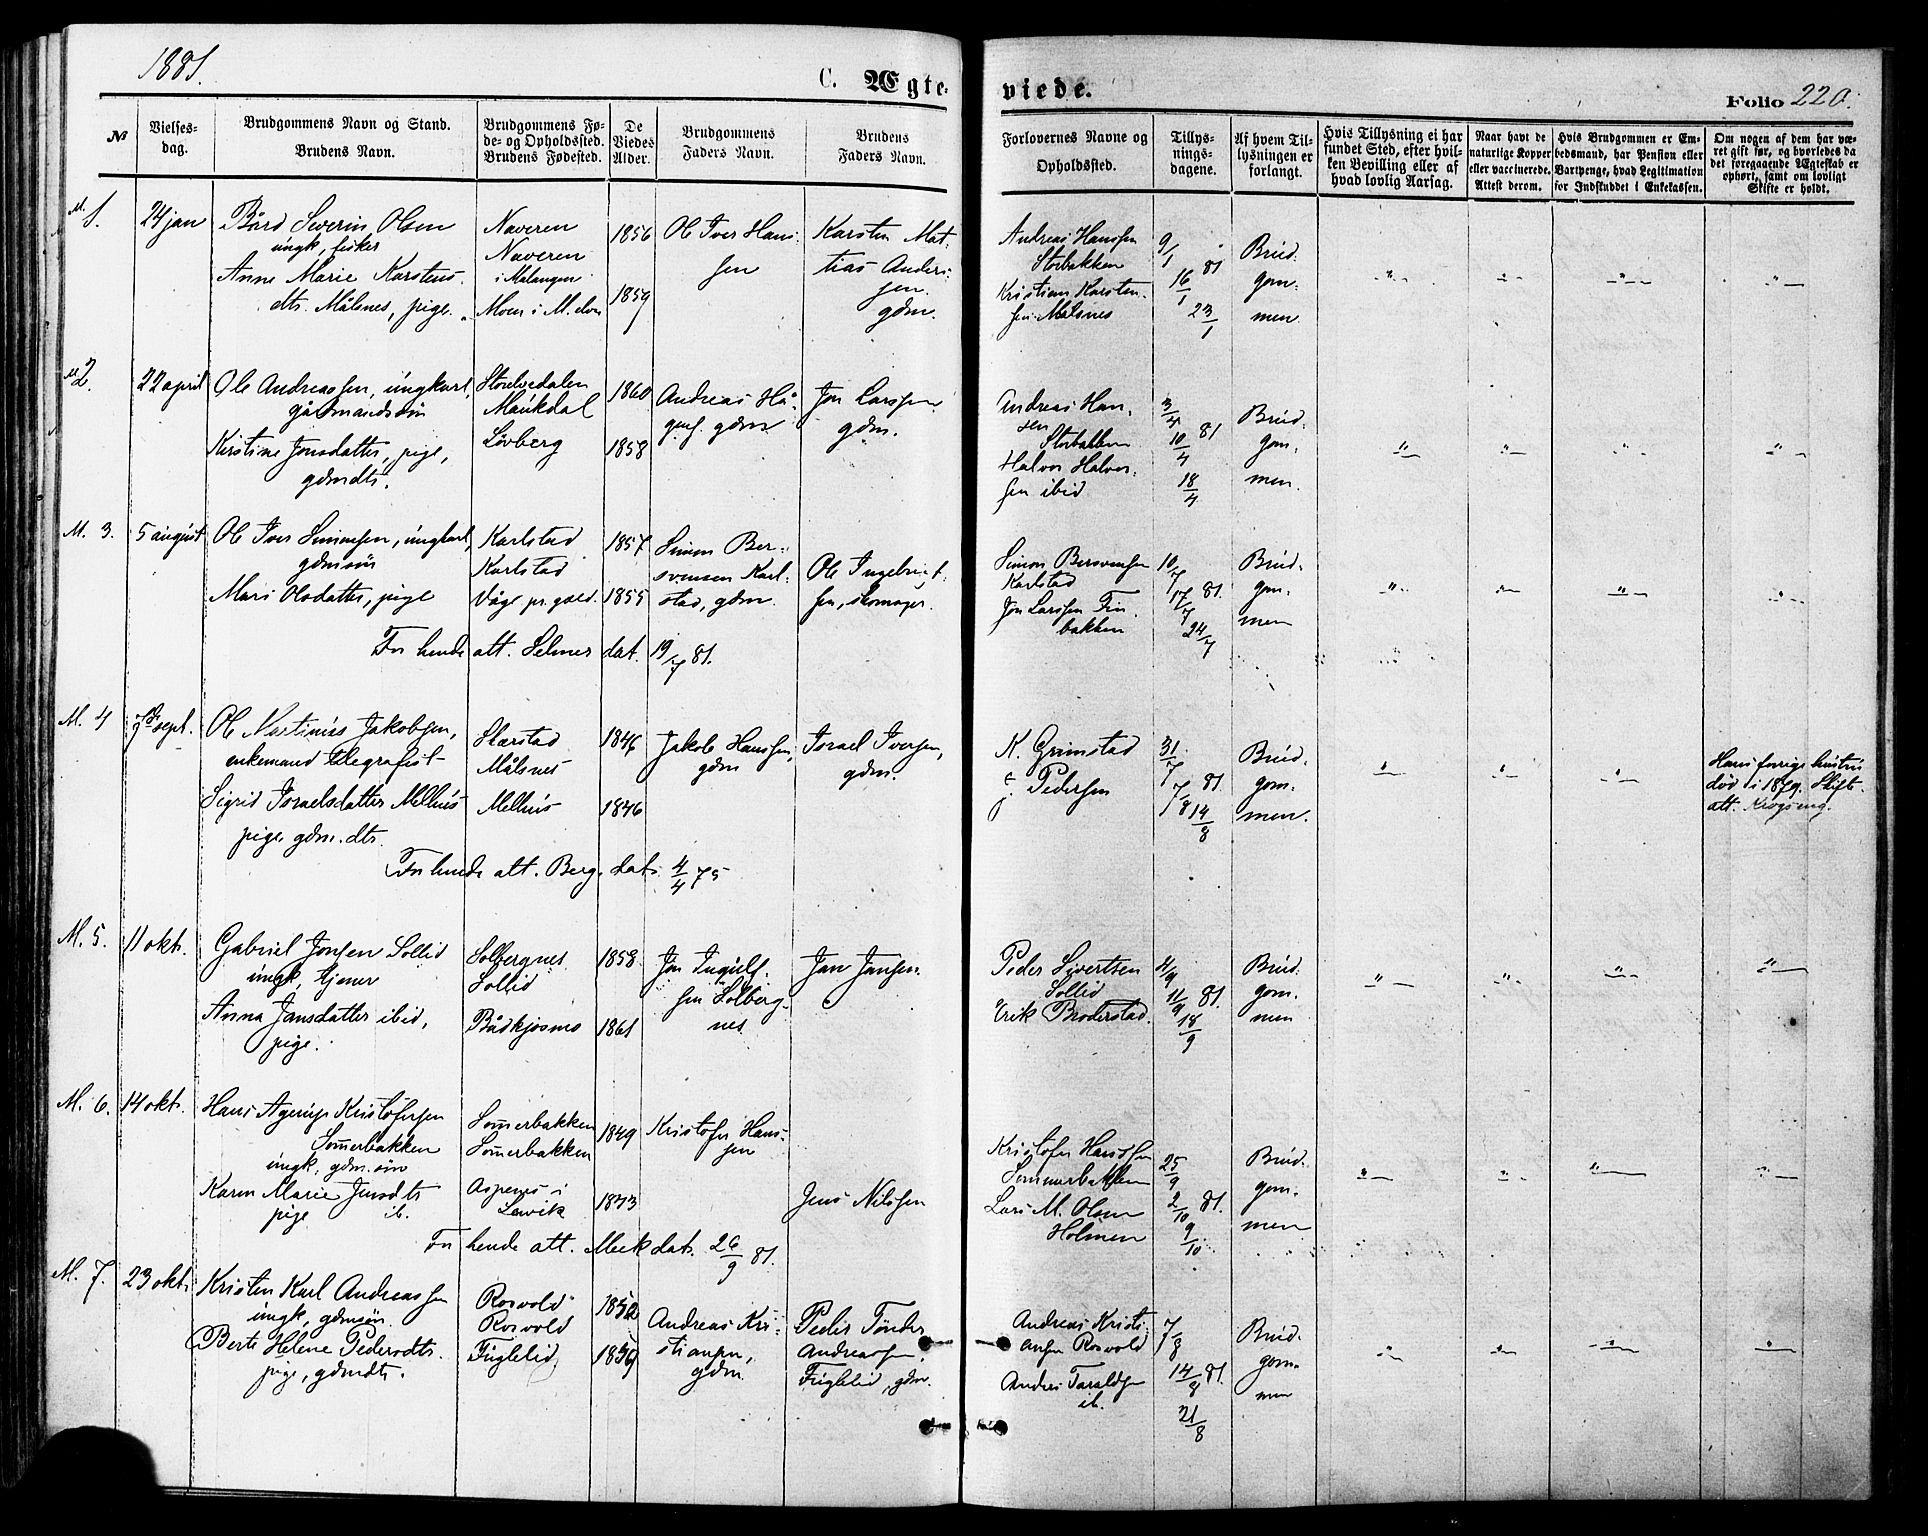 1881.
C. Ægte-
viede.
Folio 220.
№
Vielses-
dag.
Brudgommens Navn og Stand.
Brudens Navn.
Brudgommens Fø-
de- og Opholdssted.
Brudens Fødested.
De
Viedes
Alder.
Brudgommens
Faders Navn.
Brudens
Faders Navn.
Forlovernes Navne og
Opholdssted.
Tillys-
nings-
dagene.
Af hvem Til-
lysningen er
forlangt.
Hvis Tillysning ei har
fundet Sted, efter hvil-
ken Bevilling eller af
hvad lovlig Aarsag.
Naar havt de
naturlige Kopper
eller vaccinerede.
Attest derom.
Hvis Brudgommen er Em-
bedsmand, har Pension eller
Vartpenge, hvad Legitimation
for Indskuddet i Enkekassen.
Om nogen af dem har væ-
ret gift før, og hvorledes da
det foregaaende Ægteskab er
ophørt, samt om lovligt
Skifte er holdt.
M. 1.
24 jan
Bård Severin Olsen
ungk, fisker
Anne Marie Karstens-
dtr. Målsnes, pige.
Naveren
Naveren
i Malangen
Moen i M.elven
1856
1859
Ole Iver Han-
sen
Karsten Mat-
tias Ander-
sen.
gdm.
Andreas Hanssen
Storbakken
Kristian Karsten-
sen Målsnes
9/1 81
16/1
23/1
Brud-
gom-
men.
M. 2.
22 april
Ole Andreassen, ungkarl,
gårdmandssøn
Kirstine Jonsdatter, pige,
gdmdtr.
Storelvedalen
Maukdal
Løvberg
1860
1858
Andreas Hå-
gens. gdm
Jon Larssen
gdm.
Andreas Han-
sen
Storbakken
Halvor Halvor-
sen ibid
3/4
10/4 81
18/4
Brud-
gom-
men.
M. 3.
5 august
Ole Iver Simonsen, ungkarl,
gdmsøn
Mari Olsdatter, pige
Karlstad
Karlstad
Våge pr.gæld.
1857
1855
Simon Ber-
svensen Karl-
stad, gdm.
Ole Ingebrigt-
sen, skomager.
For hende att. Selmer dat. 19/7 81.
Simon Bersvensen
Karlstad
Jon Larssen Fin
bakken
10/7
17/7 81.
24/7
Brud-
gom-
men
M. 4
9de sept.
Ole Martinus Jakobsen,
enkemand telegrafist
Sigrid Israelsdatter Melhus
pige gdm.dtr.
Skærstad
Målsnes
Melhus
1846
1846
Jakob Hanssen,
gdm
Israel Iversen,
gdm.
For hende att. Berg. dat. 4/4 75
K. Grimstad
Pedersen
31/7
7/8 81.
14/8
Brud-
gom-
men.
Hans forrige hustru
død i 1879. Skifte-
att. Krogseng.
M. 5.
11 okt.
Gabriel Jonsen Sollid
ungk, tjener
Anna Jansdatter ibid,
pige.
Solbergnes
Sollid
Bådkjosmo
1858.
1861
Jon Ingulf-
sen Solberg-
nes
Jan Jansen.
Peder Sivertsen
Sollid
Erik Broderstad.
4/9
11/9 81.
18/9
Brud-
gom-
men
M. 6.
14 okt.
Hans Agerup Kristofersen
Som̄erbakken
ungk, gdm.søn
Karen Marie Jensdtr
pige ib.
Som̄erbakken
Som̄erbakken
Aspenes i
Lenvik
1849
1843
Kristofer Hans-
sen
Jens Nilssen
For hende att. Mack dat. 26/9 81.
Kristofer Hanssen
Sommerbakken
Lars M. Olsen
Holmen
25/9
2/10 81.
9/10
Brud-
gom-
men
M. 7.
23 okt.
Kristen Karl Andreassen
ungk, gdmsøn.
Berte Helene Pedersdtr.
pige, gdmdtr.
Rosvold
Rosvold
Fuglelid
1852
1859
Andreas Kri-
stiansen,
gdm.
Peder Tønder
Andreassen,
Fuglelid, gdm.
Andreas Kristi-
ansen Rosvold
Andreas Taraldsen
ib.
7/8
14/8 81.
21/8
Brud-
gom-
men